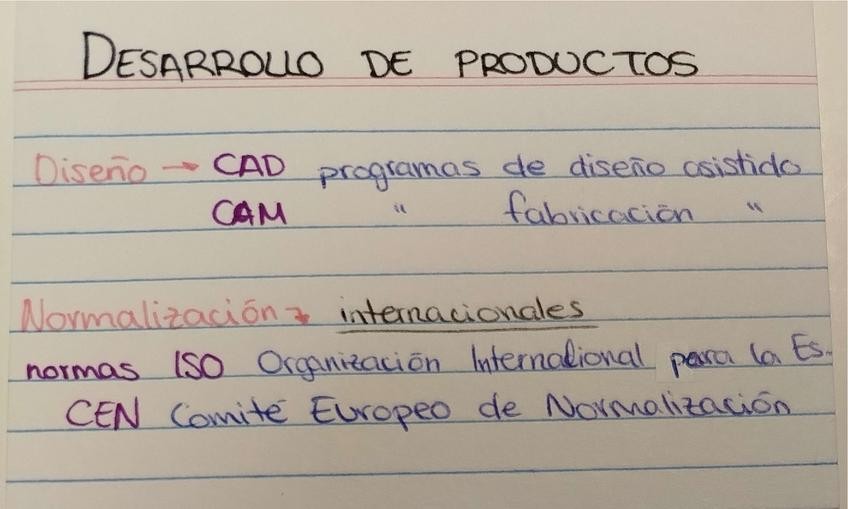 DESARROLLO DE PRODUCTOS
Diseño → CAD programas de diseño asistido
CAM " fabricación "
Normalización → internacionales
normas ISO Organización Internacional para la Es-
CEN Comité Europeo de Normalización